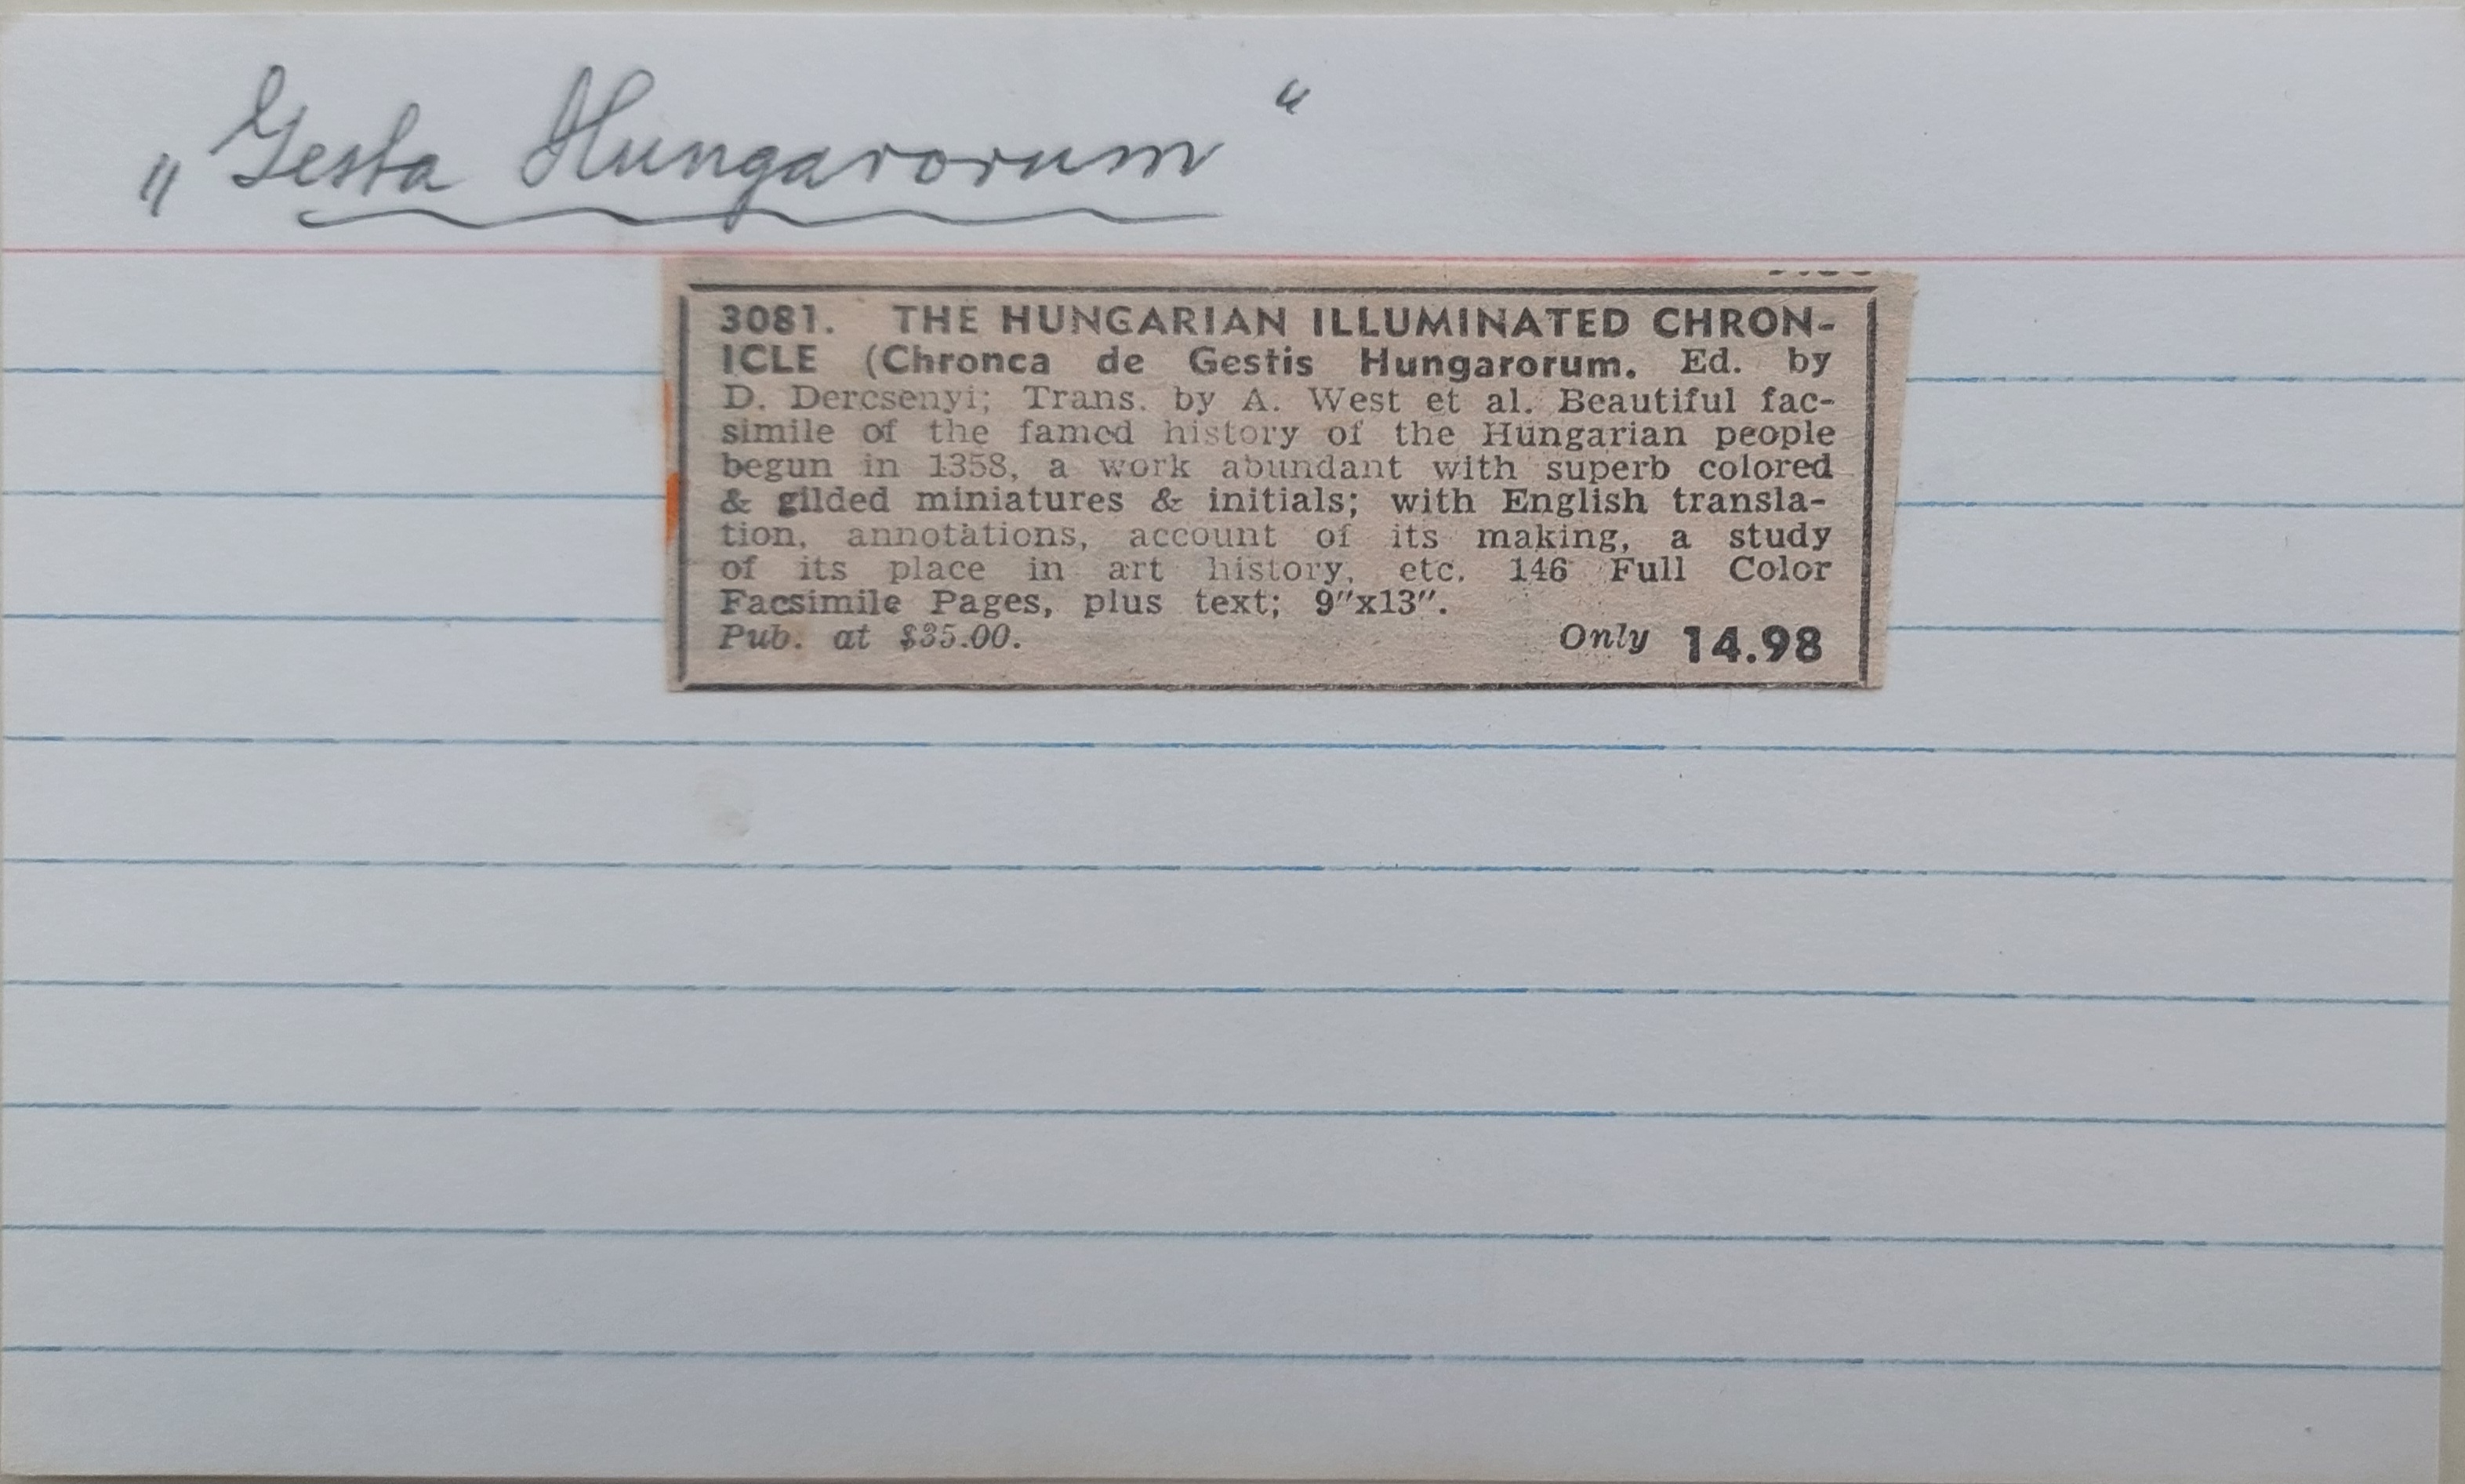 „Gesta Hungarorum“
3081. THE HUNGARIAN ILLUMINATED CHRON-
ICLE (Chronca de Gestis Hungarorum. Ed. by
D. Dercsenyi; Trans. by A. West et al. Beautiful fac-
simile of the famed history of the Hungarian people
begun in 1358, a work abundant with superb colored
& gilded miniatures & initials; with English transla-
tion, annotations, account of its making, a study
of its place in art history, etc. 146 Full Color
Facsimile Pages, plus text; 9"x13".
Pub. at $35.00. Only 14.98